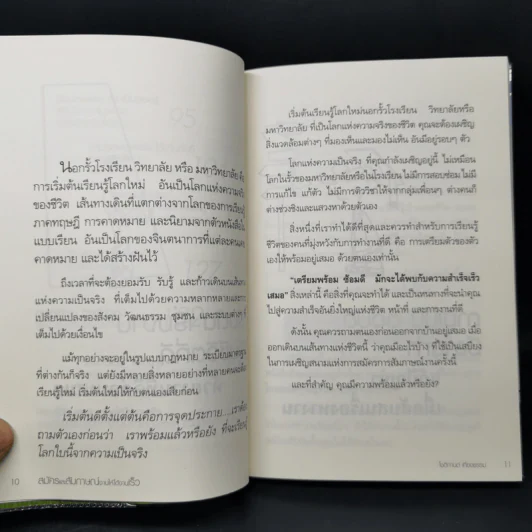 นอกรั้วโรงเรียน วิทยาลัย หรือ มหาวิทยาลัย คือ
การเริ่มต้นเรียนรู้โลกใหม่ อันเป็นโลกแห่งความจริง
ของชีวิต เส้นทางเดินที่แตกต่างจากโลกของการเรียนรู้
ภาคทฤษฎี การคาดหมาย และนิยามจากตัวหนังสือใน
แบบเรียน อันเป็นโลกของจินตนาการที่แต่ละคนคาด
คาดหมาย และได้สร้างฝันไว้
ถึงเวลาที่จะต้องยอมรับ รับรู้ และก้าวเดินบนเส้นทาง
แห่งความเป็นจริง ที่เต็มไปด้วยความหลากหลายและการ
เปลี่ยนแปลงของสังคม วัฒนธรรม ชุมชน และระบบต่างๆ ที่
เต็มไปด้วยเงื่อนไข
แม้ทุกอย่างจะอยู่ในรูปแบบกฎหมาย ระเบียบมาตรฐาน
ที่ต่างกันก็จริง แต่ยังมีหลายสิ่งหลายอย่างที่หลายคนจะต้อง
เรียนรู้ใหม่ เริ่มต้นใหม่ให้กับตนเองเสียก่อน
เริ่มต้นดีตั้งแต่ต้นคือการจุดประกาย.....เราต้อง
ถามตัวเองก่อนว่า เราพร้อมแล้วหรือยัง ที่จะเรียนรู้
โลกใบนี้จากความเป็นจริง
10 สมัครและสัมภาษณ์งานให้ได้งานเร็ว
เริ่มต้นเรียนรู้โลกใหม่นอกรั้วโรงเรียน วิทยาลัยหรือ
มหาวิทยาลัย ที่เป็นโลกแห่งความจริงของชีวิต คุณจะต้องเผชิญ
สิ่งแวดล้อมต่างๆ ที่มองเห็นและมองไม่เห็น อันมีอยู่รอบๆ ตัว
โลกแห่งความเป็นจริง ที่คุณกำลังเผชิญอยู่นี้ ไม่เหมือน
โลกในรั้วของมหาวิทยาลัยหรือในโรงเรียน ไม่มีการสอบซ่อม ไม่มี
การแก้ไข แก้ตัว ไม่มีการติววิชาให้จากกลุ่มเพื่อนๆ ต่างคนก็
ต่างช่วงชิงและแสวงหาด้วยตัวเอง
สิ่งหนึ่งที่เราทำได้ดีที่สุดและควรทำสำหรับการเรียนรู้
ชีวิตของคนที่มุ่งหวังกับการทำงานที่ดี คือ การเตรียมตัวของตัว
เองให้พร้อมอยู่เสมอ ด้วยตนเองเท่านั้น
"เตรียมพร้อม ซ้อมดี มักจะได้พบกับความสำเร็จเร็ว
เสมอ" สิ่งเหล่านี้ คือสิ่งที่คุณจะทำได้ และเป็นหนทางที่จะนำคุณ
ไปสู่ความสำเร็จอันยิ่งใหญ่แห่งชีวิต หน้าที่ และการงานที่ดี
ดังนั้น คุณควรถามตนเองก่อนออกจากบ้านอยู่เสมอ เมื่อ
ออกเดินบนเส้นทางแห่งชีวิตนี้ ว่าคุณมีอะไรบ้าง ที่ใช้เป็นเสบียง
ในการเผชิญสนามแห่งการสมัครการสัมภาษณ์งานครั้งนี้
และที่สำคัญ คุณมีความพร้อมแล้วหรือยัง?
11